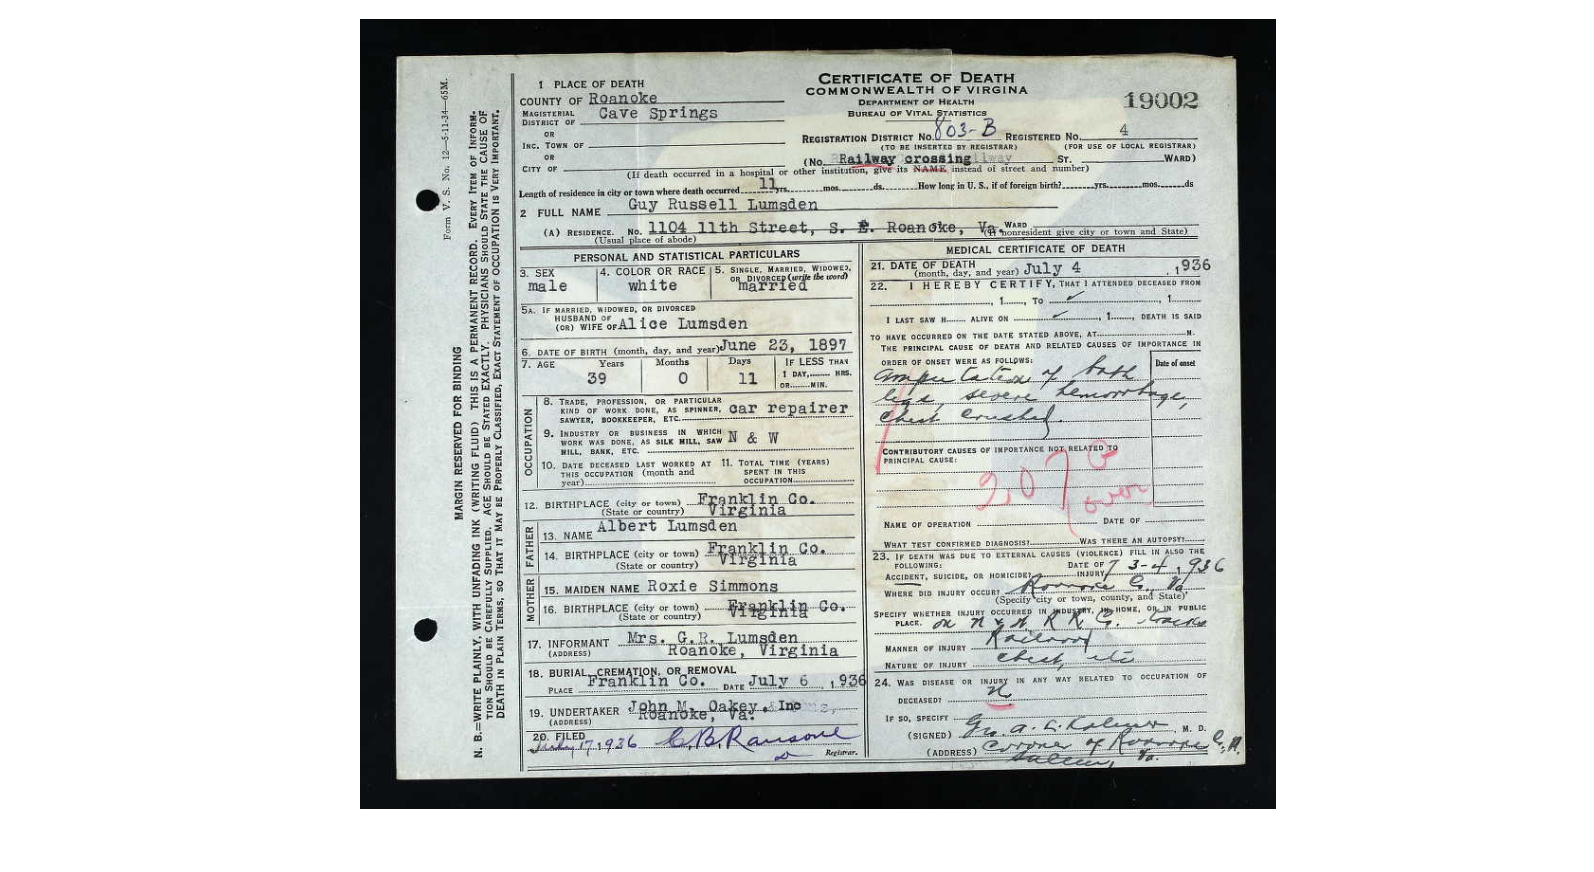 1 PLACE OF DEATH
COUNTY OF Roanoke
MAGISTERIAL DISTRICT OF Cave Springs
OR
INC. TOWN OF
OR
CITY OF
CERTIFICATE OF DEATH
COMMONWEALTH OF VIRGINIA
DEPARTMENT OF HEALTH
BUREAU OF VITAL STATISTICS
19002
REGISTRATION DISTRICT NO. 803-B REGISTERED NO. 4
(TO BE INSERTED BY REGISTRAR) (FOR USE OF LOCAL REGISTRAR)
(No. Railway crossing ST. WARD)
(If death occurred in a hospital or other institution, give its NAME instead of street and number)
Length of residence in city or town where death occurred 11 yrs. mos. ds. How long in U. S., if of foreign birth? yrs. mos. ds
2 FULL NAME Guy Russell Lumsden
(A) RESIDENCE. No. 1104 11th Street, S. E. Roanoke, Va. WARD
(Usual place of abode) (If nonresident give city or town and State)
PERSONAL AND STATISTICAL PARTICULARS
3. SEX male
4. COLOR OR RACE white
5. SINGLE, MARRIED, WIDOWED, OR DIVORCED (write the word) married
5A. IF MARRIED, WIDOWED, OR DIVORCED
HUSBAND OF
(OR) WIFE OF Alice Lumsden
6. DATE OF BIRTH (month, day, and year) June 23, 1897
7. AGE Years 39 Months 0 Days 11 IF LESS THAN 1 DAY, HRS. OR MIN.
OCCUPATION
8. TRADE, PROFESSION, OR PARTICULAR KIND OF WORK DONE, AS SPINNER, SAWYER, BOOKKEEPER, ETC. car repairer
9. INDUSTRY OR BUSINESS IN WHICH WORK WAS DONE, AS SILK MILL, SAW MILL, BANK, ETC. N & W
10. DATE DECEASED LAST WORKED AT THIS OCCUPATION (month and year)
11. TOTAL TIME (YEARS) SPENT IN THIS OCCUPATION
12. BIRTHPLACE (city or town) Franklin Co.
(State or country) Virginia
FATHER
13. NAME Albert Lumsden
14. BIRTHPLACE (city or town) Franklin Co.
(State or country) Virginia
MOTHER
15. MAIDEN NAME Roxie Simmons
16. BIRTHPLACE (city or town) Franklin Co.
(State or country) Virginia
17. INFORMANT Mrs. G.R. Lumsden
(ADDRESS) Roanoke, Virginia
18. BURIAL, CREMATION, OR REMOVAL
PLACE Franklin Co. DATE July 6, 1936
19. UNDERTAKER John M. Oakey, Inc
(ADDRESS) Roanoke, Va.
20. FILED July 17, 1936 C.B. Ransone
Registrar.
MEDICAL CERTIFICATE OF DEATH
21. DATE OF DEATH (month, day, and year) July 4, 1936
22. I HEREBY CERTIFY, THAT I ATTENDED DECEASED FROM
, 1 , TO ✓ , 1
I LAST SAW H ALIVE ON ✓ , 1 , DEATH IS SAID
TO HAVE OCCURRED ON THE DATE STATED ABOVE, AT M.
THE PRINCIPAL CAUSE OF DEATH AND RELATED CAUSES OF IMPORTANCE IN
ORDER OF ONSET WERE AS FOLLOWS: Date of onset
amputation of both
legs, severe hemorrhage,
chest crushed
CONTRIBUTORY CAUSES OF IMPORTANCE NOT RELATED TO
PRINCIPAL CAUSE:
over
NAME OF OPERATION DATE OF
WHAT TEST CONFIRMED DIAGNOSIS? WAS THERE AN AUTOPSY?
23. IF DEATH WAS DUE TO EXTERNAL CAUSES (VIOLENCE) FILL IN ALSO THE
FOLLOWING:
ACCIDENT, SUICIDE, OR HOMICIDE? DATE OF INJURY 7 3-4, 1936
WHERE DID INJURY OCCUR? Roanoke Co., Va
(Specify city or town, county, and State)
SPECIFY WHETHER INJURY OCCURRED IN INDUSTRY, IN HOME, OR IN PUBLIC
PLACE. on N & W R R Co. tracks
MANNER OF INJURY Railroad
NATURE OF INJURY chest, etc
24. WAS DISEASE OR INJURY IN ANY WAY RELATED TO OCCUPATION OF
DECEASED?
IF SO, SPECIFY
(SIGNED) Geo. A. L. Kolmer M. D.
(ADDRESS) Coroner of Roanoke Co.
Salem, Va.
MARGIN RESERVED FOR BINDING
Form V. S. No. 12—5-11-34—65M.
N. B.—WRITE PLAINLY, WITH UNFADING INK (WRITING FLUID) THIS IS A PERMANENT RECORD. EVERY ITEM OF INFORM-
TION SHOULD BE CAREFULLY SUPPLIED. AGE SHOULD BE STATED EXACTLY. PHYSICIANS SHOULD STATE THE CAUSE OF
DEATH IN PLAIN TERMS, SO THAT IT MAY BE PROPERLY CLASSIFIED, EXACT STATEMENT OF OCCUPATION IS VERY IMPORTANT.